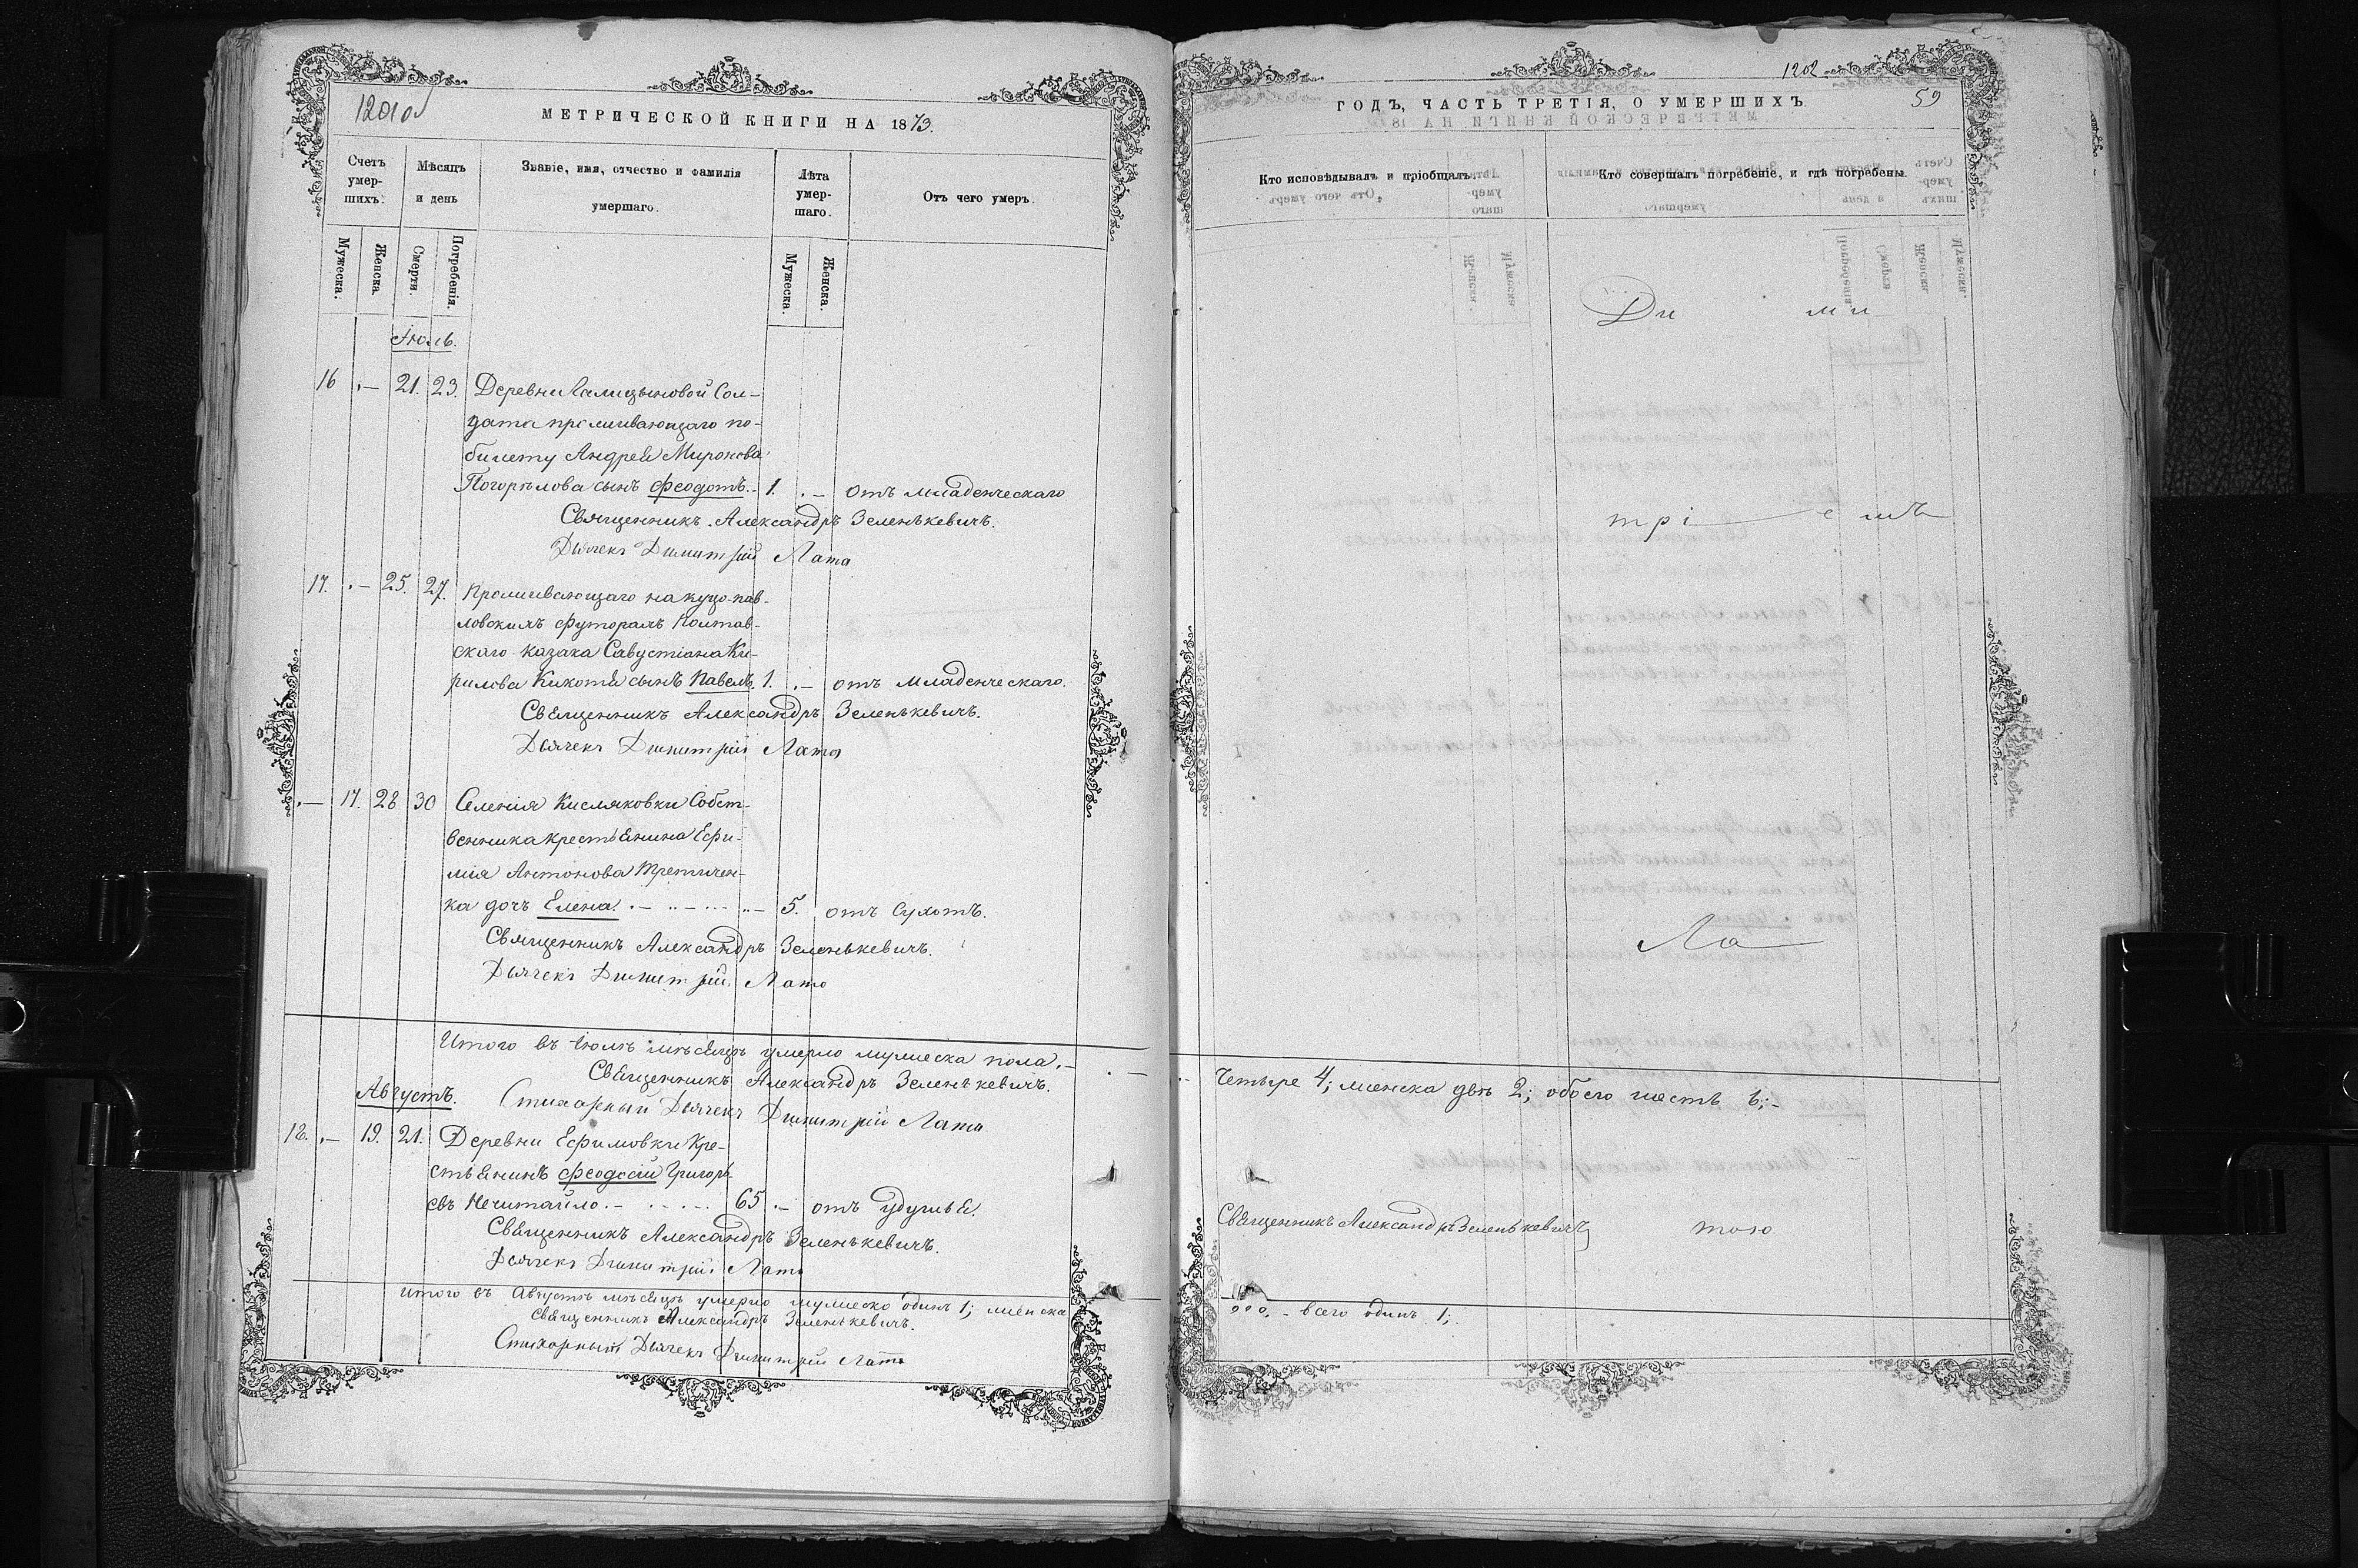 МЕТРИЧЕСКОЙ КНИГИ НА 1873.
Счетъ умершихъ.
Мѣсяцъ и день
Званіе, имя, отчество и фамилія умершаго.
Лѣта умершаго.
Отъ чего умеръ.
Мужеска.
Женска.
Смерти.
Погребенія.
Мужеска.
Женска.
Іюль.
16 .— 21. 23. Деревни Галицыновой Сол-
дата проживающаго по-
билету Андрея Миронова
Погорѣлова сынъ Феодотъ. - 1. .— отъ младенческаго
Священникъ Александръ Зеленькевичъ.
Дьячекъ Димитрій Лата
17. .— 25. 27. Проживающаго на куцо-пав-
ловскихъ футорахъ Полтав-
скаго казака Савустіана Ки-
рилова Кикотя сынъ Павелъ. 1. .— отъ младенческаго.
Священникъ Александръ Зеленькевичъ.
Дьячекъ Димитрій Лата
.— 17. 28 30 Селенія Кисляковки Собст-
венника крестьянина Ефи-
мія Антонова Третичен-
ка дочь Елена. 5. отъ сухотъ.
Священникъ Александръ Зеленькевичъ.
Дьячекъ Димитрій Лата
Итого въ Іюлѣ мѣсяцѣ умерло мужеска пола. —
Священникъ Александръ Зеленькевичъ.
Стихарный Дьячекъ Димитрій Лата
Августъ.
18. .— 19. 21. Деревни Ефимовки Кре-
стьянинъ Феодосій Григорь-
евъ Нечитайло. — 65 .— отъ удушья.
Священникъ Александръ Зеленькевичъ.
Дьячекъ Димитрій Лата
Итого въ Августѣ мѣсяцѣ умерло мужеско одинъ 1; женска
Священникъ Александръ Зеленькевичъ.
Стихарный Дьячекъ Димитрій Лата
1202
ГОДЪ, ЧАСТЬ ТРЕТІЯ, О УМЕРШИХЪ.
59
Кто исповѣдывалъ и пріобщалъ.
Кто совершалъ погребеніе, и гдѣ погребены.
Ди ми
трі е мъ
Ла
Четыре 4; женска двѣ 2; обоего шесть 6; -
Священникъ Александръ Зеленькевичъ
тою
000. - всего одинъ 1;.